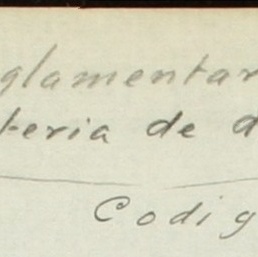 glamentar
teria de d
Codig